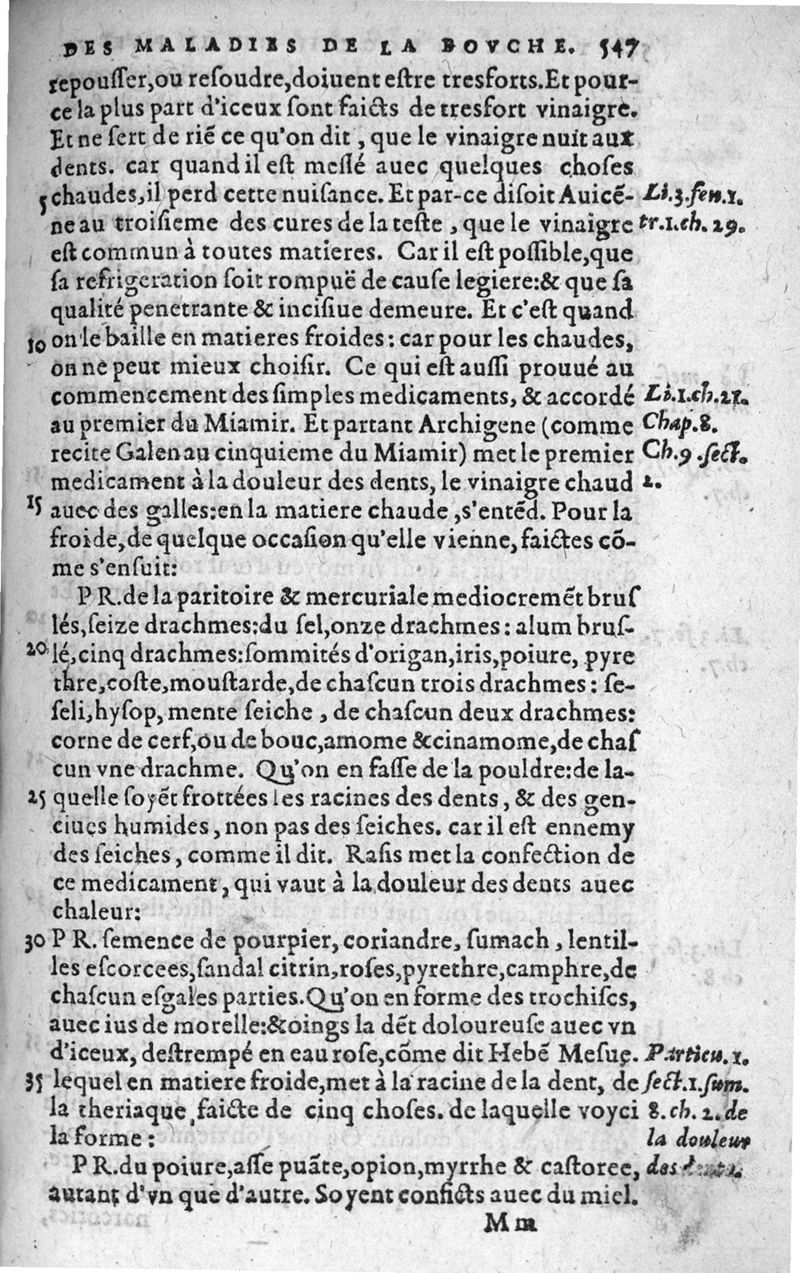 DES MALADIES DE LA BOVCHE. 547
repouſſer,ou reſoudre,doiuent eſtre tresforts.Et pour-
ce la plus part d'iceux ſont faicts de tresfort vinaigre.
Et ne ſert de riẽ ce qu'on dit , que le vinaigre nuit aux
dents. car quand il eſt meſlé auec quelques choſes
5 chaudes,il perd cette nuiſance. Et par-ce diſoit Auicẽ- Li.3.fen.1.
ne au troiſieme des cures de la teſte , que le vinaigre tr.1.ch.29.
eſt commun à toutes matieres. Car il eſt poſſible,que
ſa refrigeration ſoit rompuë de cauſe legiere:& que ſa
qualité penetrante & inciſiue demeure. Et c'eſt quand
10 on le baille en matieres froides : car pour les chaudes,
on ne peut mieux choiſir. Ce qui eſt auſſi prouué au
commencement des ſimples medicaments, & accordé Li.1.ch.21.
au premier du Miamir. Et partant Archigene (comme Chap.8.
recite Galen au cinquieme du Miamir) met le premier Ch.9.ſect.
medicament à la douleur des dents, le vinaigre chaud 2.
15 auec des galles:en la matiere chaude ,s'entẽd. Pour la
froide,de quelque occaſion qu'elle vienne, faictes cõ-
me s'enſuit:
P R.de la paritoire & mercuriale mediocremẽt bruſ
lés,ſeize drachmes:du ſel,onze drachmes : alum bruſ-
20 lé,cinq drachmes:ſommités d'origan,iris,poiure, pyre
thre,coſte,mouſtarde,de chaſcun trois drachmes : ſe-
ſeli,hyſop, mente ſeiche , de chaſcun deux drachmes:
corne de cerf,ou de bouc,amome &cinamome,de chaſ
cun vne drachme. Qu'on en faſſe de la pouldre:de la-
25 quelle ſoyẽt frottées les racines des dents , & des gen-
ciues humides , non pas des ſeiches. car il eſt ennemy
des ſeiches , comme il dit. Raſis met la confection de
ce medicament , qui vaut à la douleur des dents auec
chaleur:
30 P R. ſemence de pourpier, coriandre, ſumach , lentil-
les eſcorcees,ſandal citrin,roſes,pyrethre,camphre,de
chaſcun eſgales parties.Qu'on en forme des trochiſcs,
auec ius de morelle:&oings la dẽt doloureuſe auec vn
d'iceux, deſtrempé en eau roſe,cõme dit Hebẽ Meſuę. Particu.1.
35 lequel en matiere froide,met à la racine de la dent, de ſect.1.ſum.
la theriaque faicte de cinq choſes. de laquelle voyci 8.ch.2.de
la forme : la douleur
P R.du poiure,aſſe puãte,opion,myrrhe & caſtoree, des
autant d'vn que d'autre. Soyent conficts auec du miel.
Mm